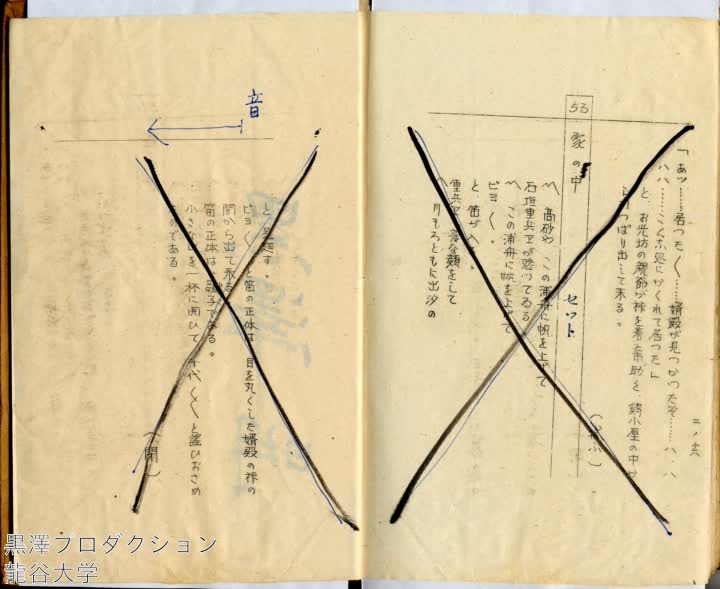 「あッ……居つた〱……婿殿が見つかつたぞ……ハ、ハ
ハハ……こんな処にかくれて居つた」
と、お光坊の親爺が裃を着た市助を、鶏小屋の中か
ら引つぱり出して来る。
53
家の中
セット
〽高砂や、この浦舟に帆を上げて
石垣重兵ヱが唸つてゐる
〽この浦舟に帆を上げて
ピョ〱。
と笛が入る。
重兵ヱ変な顔をして
〽月もろともに出汐の
音
ピョ〱と笛の正体は、目を丸くした婿殿の裃の
間から出て来る
笛の正体は、雛子である。
小さな口を一杯に開いて、千代〱〱と謡ひおさめ
るのである。
(閉)
黒澤プロダクション
龍谷大学